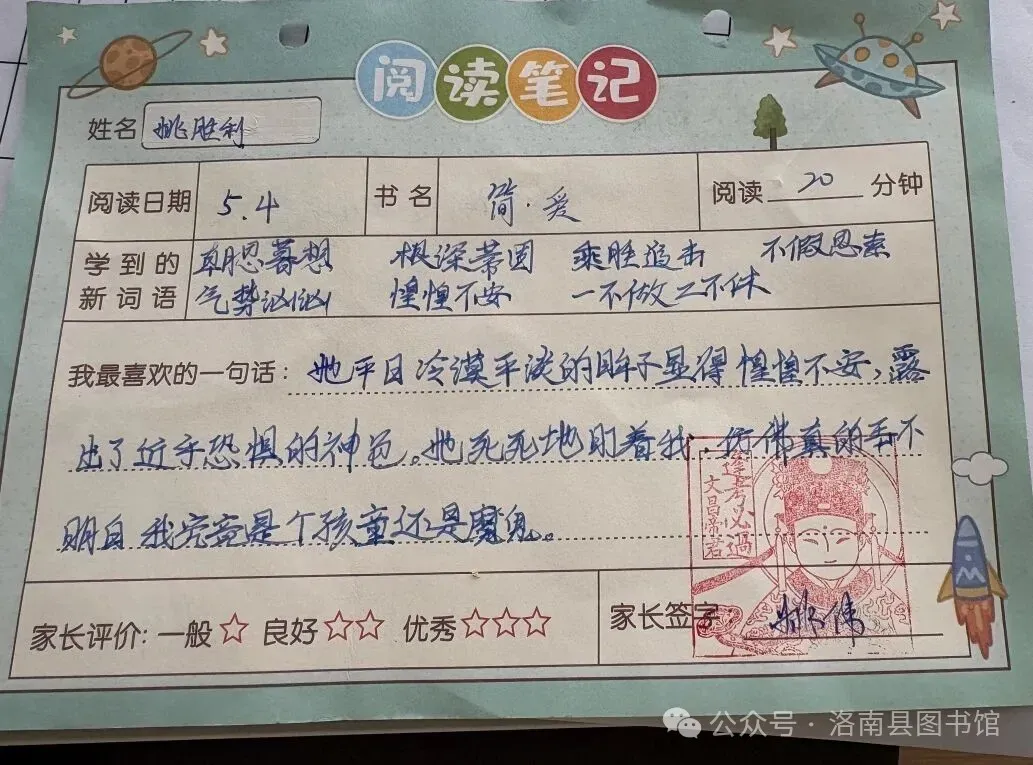 阅读笔记
姓名 姚胜利
阅读日期 5.4 书名 简·爱 阅读 20 分钟
学到的 朝思暮想 根深蒂固 乘胜追击 不假思索
新词语 气势汹汹 惶惶不安 一不做二不休
我最喜欢的一句话: 她平日冷漠平淡的眸子显得惶惶不安,露
出了近乎恐惧的神色。她死死地盯着我,仿佛真的弄不
明白我究竟是个孩童还是魔鬼。
逢考必过
文昌帝君
家长评价: 一般☆ 良好☆☆ 优秀☆☆☆ 家长签字 姚伟
公众号 · 洛南县图书馆